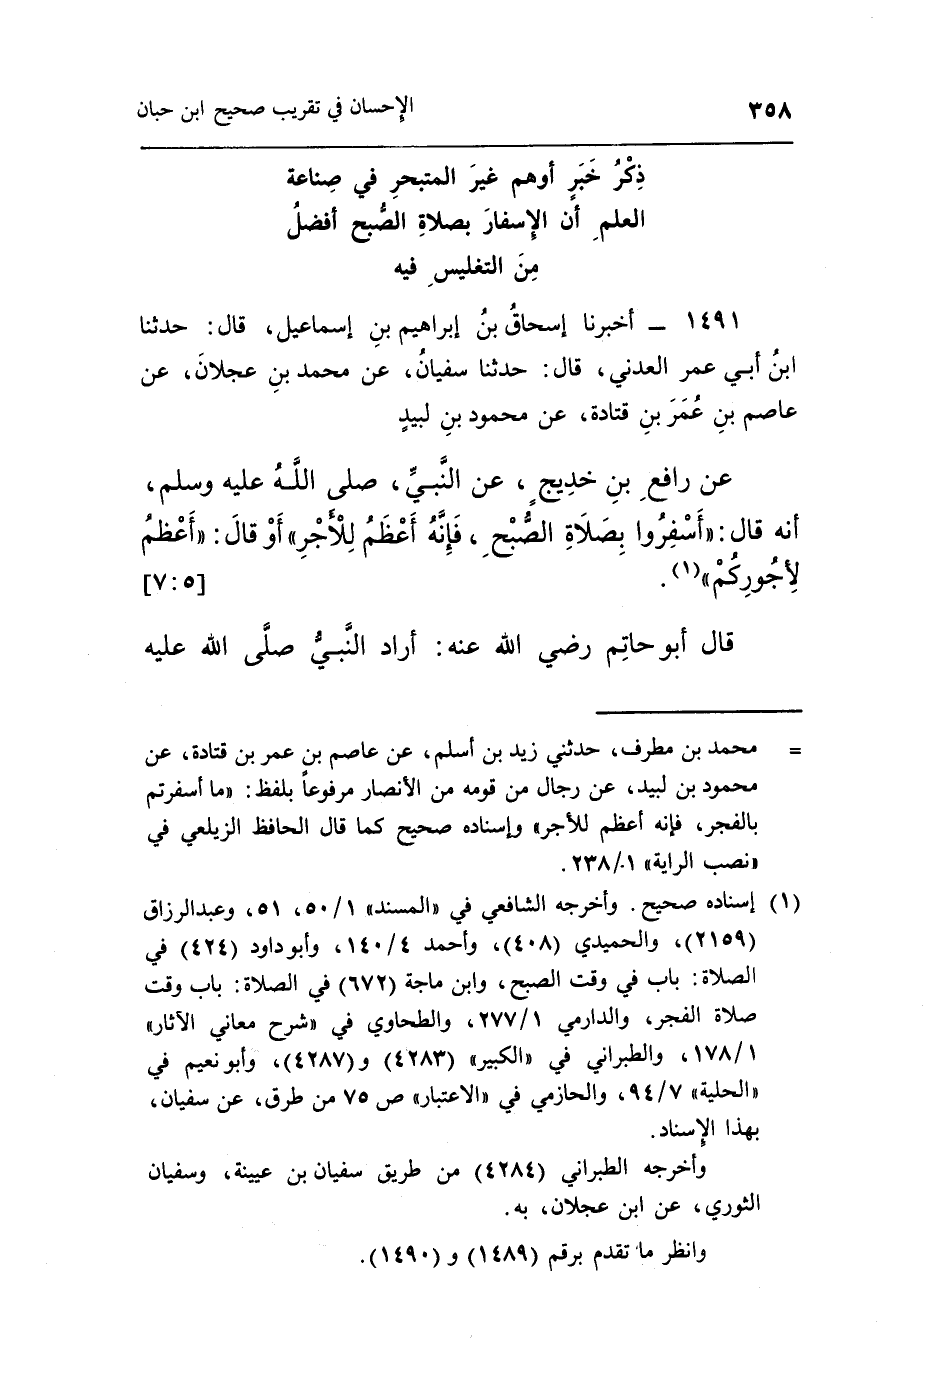 ٣٥٨
الإحسان في تقريب صحيح ابن حبان
ذِكْرُ خَبَرٍ أوهم غيرَ المتبحرِ في صِناعة
العلمِ أن الإسفارَ بصلاةِ الصُّبح أفضلُ
مِنَ التغليسِ فيه
١٤٩١ ـ أخبرنا إسحاقُ بنُ إبراهيم بنِ إسماعيل، قال: حدثنا
ابنُ أبي عمر العدني، قال: حدثنا سفيانُ، عن محمد بنِ عجلانَ، عن
عاصم بنِ عُمَرَ بنِ قتادة، عن محمود بنِ لبيدٍ
عن رافعِ بنِ خديجٍ، عن النَّبيِّ، صلى اللَّهُ عليه وسلم،
أنه قال: «أَسْفِرُوا بِصَلَاةِ الصُّبْحِ، فَإِنَّهُ أَعْظَمُ لِلْأَجْرِ» أَوْ قالَ: «أَعْظَمُ
لِأُجُورِكُمْ»(١).
[٧:٥]
قال أبو حاتِم رضي الله عنه: أراد النَّبيُّ صلَّى الله عليه
= محمد بن مطرف، حدثني زيد بن أسلم، عن عاصم بن عمر بن قتادة، عن
محمود بن لبيد، عن رجال من قومه من الأنصار مرفوعاً بلفظ: «ما أسفرتم
بالفجر، فإنه أعظم للأجر» وإسناده صحيح كما قال الحافظ الزيلعي في
«نصب الراية» ٢٣٨/١.
(١) إسناده صحيح. وأخرجه الشافعي في «المسند» ٥٠/١، ٥١، وعبدالرزاق
(٢١٥٩)، والحميدي (٤٠٨)، وأحمد ١٤٠/٤، وأبو داود (٤٢٤) في
الصلاة: باب في وقت الصبح، وابن ماجة (٦٧٢) في الصلاة: باب وقت
صلاة الفجر، والدارمي ٢٧٧/١، والطحاوي في «شرح معاني الآثار»
١٧٨/١، والطبراني في «الكبير» (٤٢٨٣) و(٤٢٨٧)، وأبو نعيم في
«الحلية» ٩٤/٧، والحازمي في «الاعتبار» ص ٧٥ من طرق، عن سفيان،
بهذا الإسناد.
وأخرجه الطبراني (٤٢٨٤) من طريق سفيان بن عيينة، وسفيان
الثوري، عن ابن عجلان، به.
وانظر ما تقدم برقم (١٤٨٩) و (١٤٩٠).